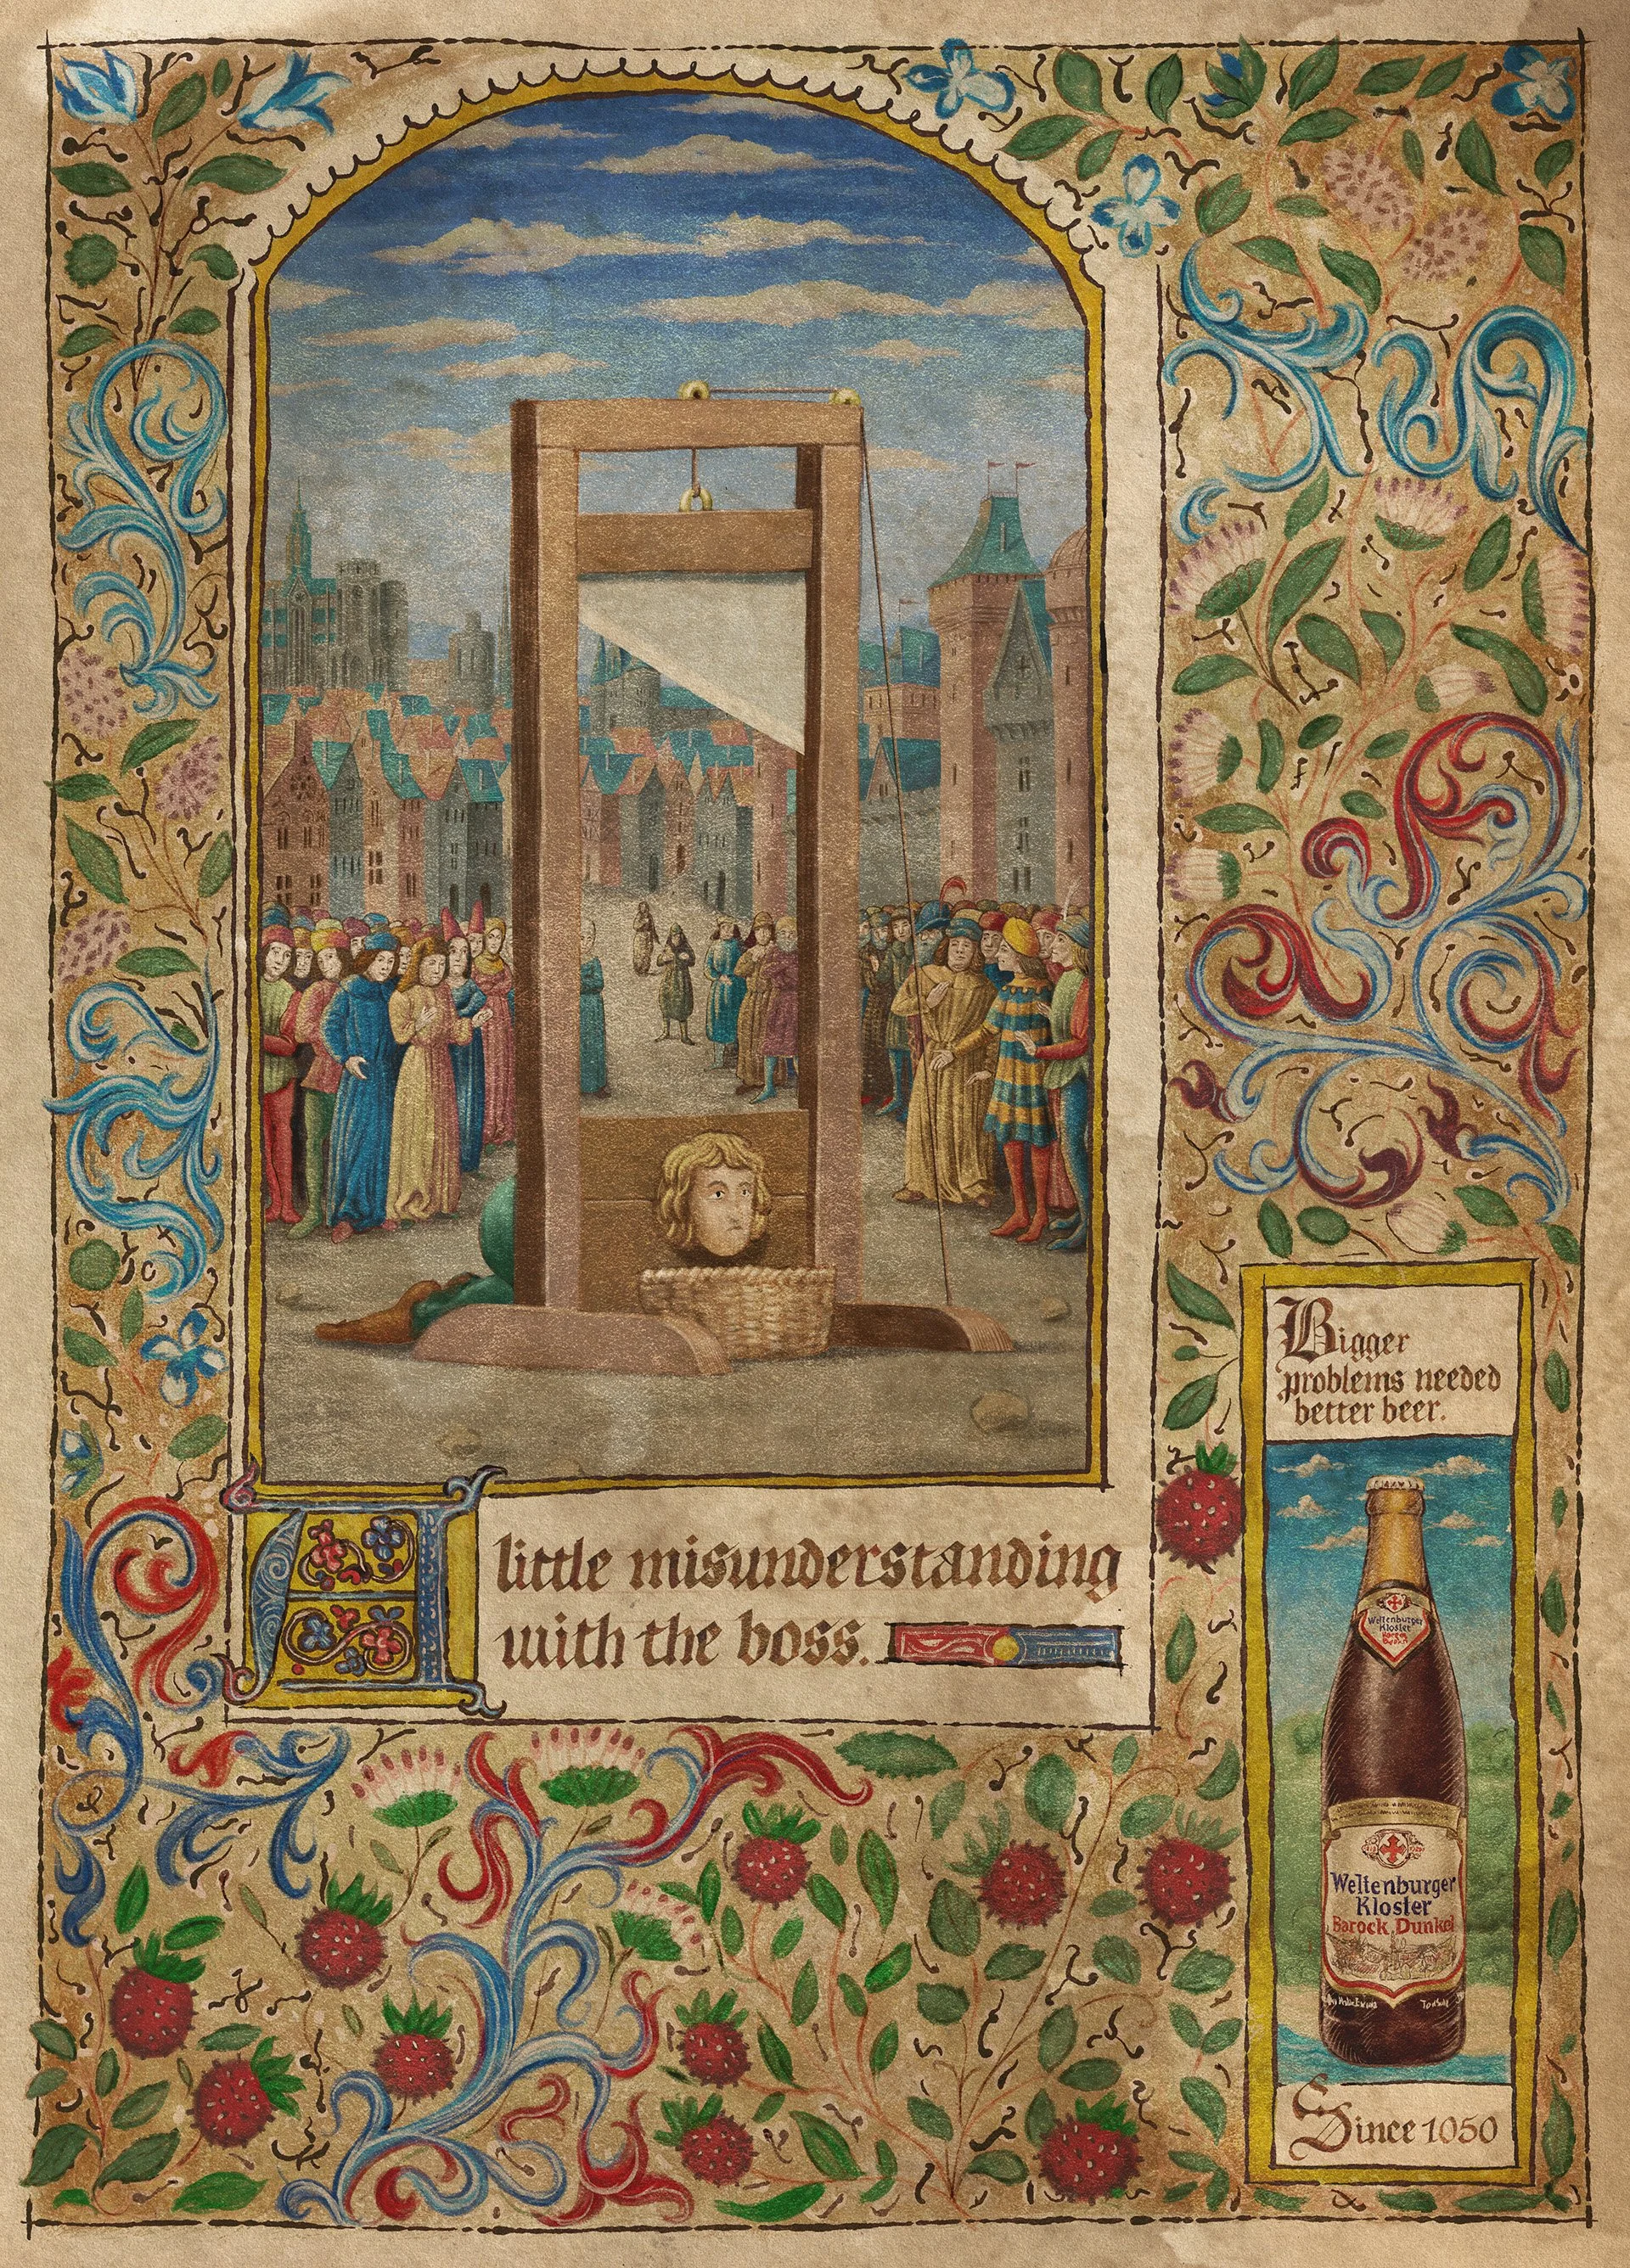 A little misunderstanding
with the boss.
Bigger
problems needed
better beer.
Weltenburger
Kloster
Barock
Dunkel
Weltenburger
Kloster
Barock Dunkel
Since 1050